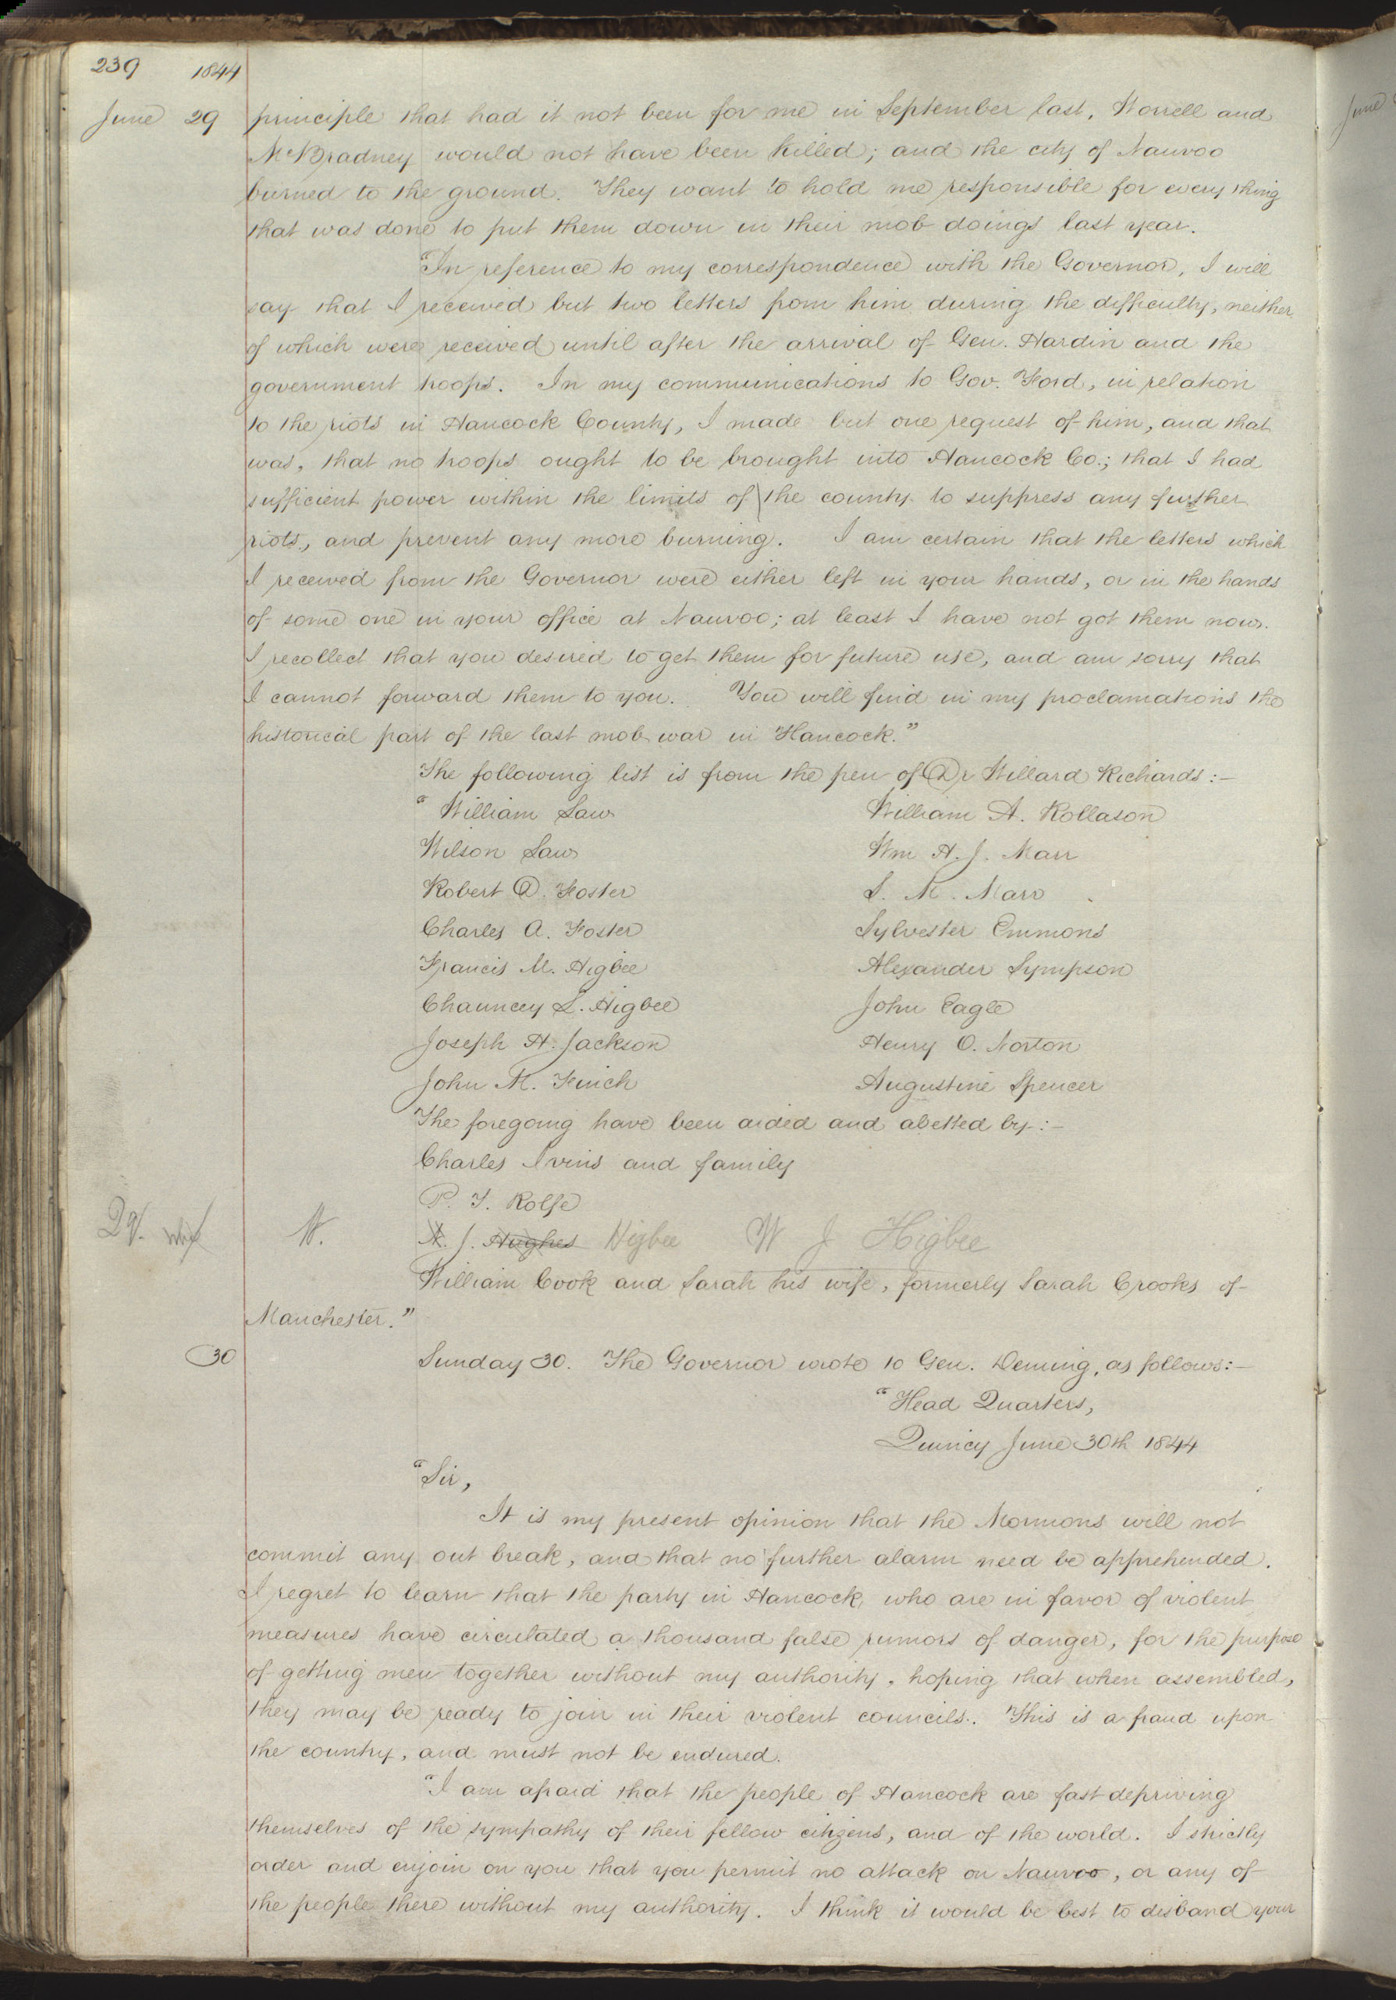 239 1844
June 29 principle that had it not been for me in September last, Worrell and
McBradney would not have been killed; and the city of Nauvoo
burned to the ground. They want to hold me responsible for every thing
that was done to put them down in their mob doings last year.
"In reference to my correspondence with the Governor, I will
say that I received but two letters from him during the difficulty, neither
of which were received until after the arrival of Gen. Hardin and the
government troops. In my communications to Gov. Ford, in relation
to the riots in Hancock County, I made but one request of him, and that
was, that no troops ought to be brought into Hancock Co.; that I had
sufficient power within the limits of the county to suppress any further
riots, and prevent any more burning. I am certain that the letters which
I received from the Governor were either left in your hands, or in the hands
of some one in your office at Nauvoo; at least I have not got them now.
I recollect that you desired to get them for future use, and am sorry that
I cannot forward them to you. You will find in my proclamations the
historical part of the last mob war in Hancock."
The following list is from the pen of Dr Willard Richards:—
"William Law William A. Rollason
Wilson Law Wm H. J. Marr
Robert D. Foster S. M. Marr
Charles A. Foster Sylvester Emmons
Francis M. Higbee Alexander Sympson
Chauncey L. Higbee John Eagle
Joseph H. Jackson Henry O. Norton
John M. Finch Augustine Spencer
The foregoing have been aided and abetted by:—
Charles Ivins and family
P. T. Rolfe
W. N. J. Hughes Higbee W J Higbee
William Cook and Sarah his wife, formerly Sarah Crooks of
Manchester."
30 Sunday 30. The Governor wrote to Gen. Deming, as follows:—
"Head Quarters,
Quincy June 30th 1844
"Sir,
It is my present opinion that the Mormons will not
commit any out break, and that no further alarm need be apprehended.
I regret to learn that the party in Hancock, who are in favor of violent
measures have circulated a thousand false rumors of danger, for the purpose
of getting men together without my authority, hoping that when assembled,
they may be ready to join in their violent councils. This is a fraud upon
the country, and must not be endured.
"I am afraid that the people of Hancock are fast depriving
themselves of the sympathy of their fellow citizens, and of the world. I strictly
order and enjoin on you that you permit no attack on Nauvoo, or any of
the people there without my authority. I think it would be best to disband your
June